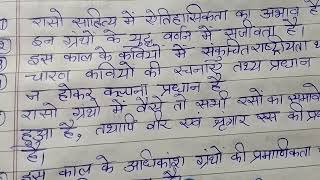 रासो साहित्य में ऐतिहासिकता का अभाव है।
इन ग्रंथों के युद्ध वर्णन में सजीवता है।
इस काल के कवियों में संकुचित राष्ट्रीयता थ
चारण कवियों की रचनाएँ तथ्य प्रधान
न होकर कल्पना प्रधान हैं
रासो ग्रंथों में वैसे तो सभी रसों का समावे
हुआ है, तथापि वीर एवं श्रृंगार रस की प्र
है।
इस काल के अधिकांश ग्रंथों की प्रमाणिकता